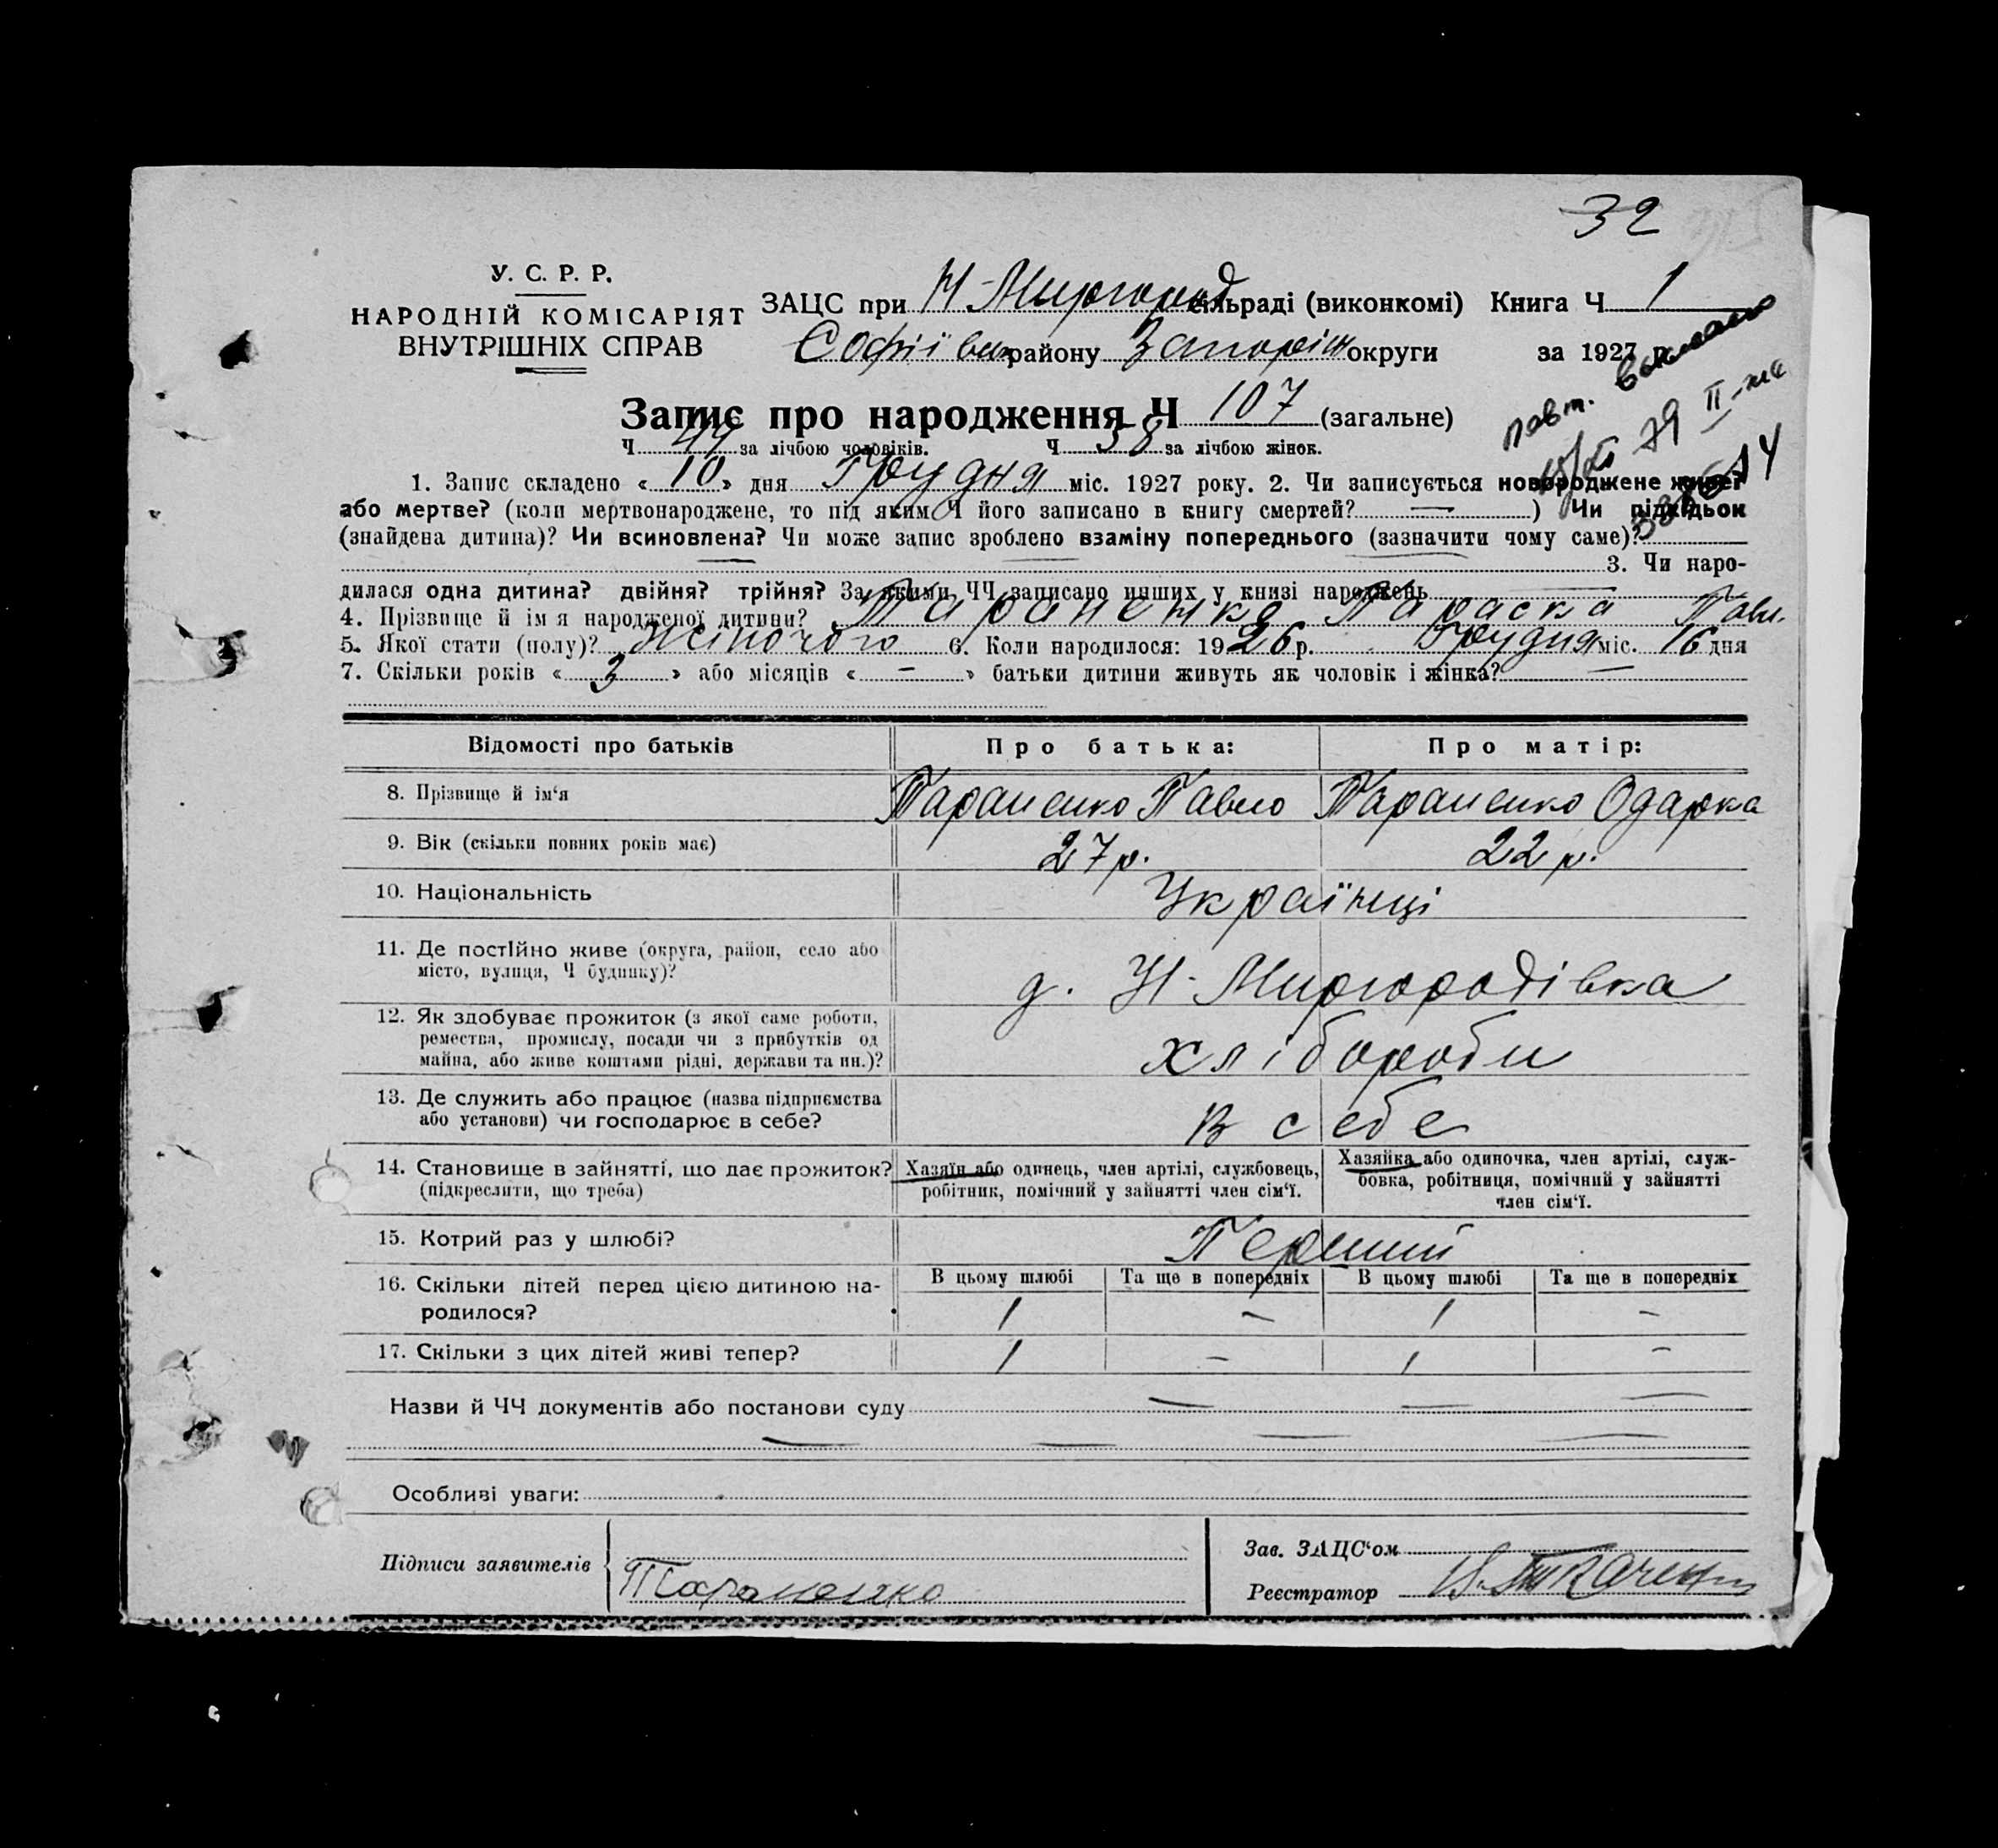 32
У. С. Р. Р.
НАРОДНІЙ КОМІСАРІЯТ
ВНУТРІШНІХ СПРАВ
ЗАЦС при Н-Миргород сільраді (виконкомі) Книга Ч 1
Софіївськ району Запоріж округи за 1927 р.
повт. выслано
79 II-
Запис про народження Ч 107 (загальне)
Ч 49 за лічбою чоловіків. Ч 58 за лічбою жінок.
1. Запис складено « 10 » дня Грудня міс. 1927 року. 2. Чи записується новороджене живе?
або мертве? (коли мертвонароджене, то під яким Ч його записано в книгу смертей? — ) Чи підкідьок
(знайдена дитина)? Чи всиновлена? Чи може запис зроблено взаміну попереднього (зазначити чому саме)?
3. Чи наро-
дилася одна дитина? двійня? трійня? За якими ЧЧ записано инших у книзі народжень
4. Прізвище й імя народженої дитини? Тараненко Параска Павл.
5. Якої стати (полу)? жіночого 6. Коли народилося: 1926 р. Грудня міс. 16 дня
7. Скільки років « 3 » або місяців « — » батьки дитини живуть як чоловік і жінка? —
Відомості про батьків Про батька: Про матір:
8. Прізвище й ім‘я Тараненко Павло Тараненко Одарка
9. Вік (скільки повних років має) 27 р. 22 р.
10. Національність Українці
11. Де постійно живе (округа, район, село або
місто, вулиця, Ч будинку)? д. Н-Миргородівка
12. Як здобуває прожиток (з якої саме роботи,
ремества, промислу, посади чи з прибутків од
майна, або живе коштами рідні, держави та ин.)? хлібороби
13. Де служить або працює (назва підприємства
або установи) чи господарює в себе? в себе
14. Становище в зайнятті, що дає прожиток?
(підкреслити, що треба)
Хазяїн або одинець, член артілі, службовець,
робітник, помічний у зайнятті член сім‘ї.
Хазяйка або одиночка, член артілі, служ-
бовка, робітниця, помічний у зайнятті
член сім‘ї.
15. Котрий раз у шлюбі? Перший
16. Скільки дітей перед цією дитиною на-
родилося?
В цьому шлюбі Та ще в попередніх В цьому шлюбі Та ще в попередніх
1 — 1 —
17. Скільки з цих дітей живі тепер? 1 — 1 —
Назви й ЧЧ документів або постанови суду — — —
— — — —
Особливі уваги:
Підписи заявителів Тараненко
Зав. ЗАЦС‘ом
Реєстратор Ткаченко